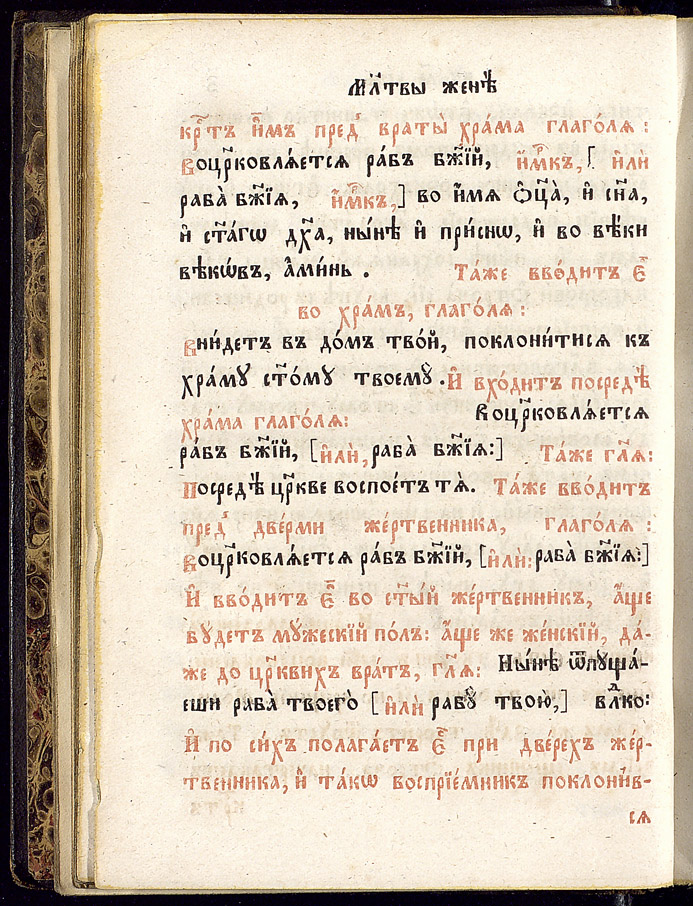 Мл҃твы женѣ̀
кр҇тъ и҆́мъ пред̾ враты̀ хра́ма глаго́лѧ :
Воцр҃ковлѧ́етсѧ ра́бъ бж҃їй, и҆м҃ркъ, [ и҆лѝ
раба̀ бж҃їѧ, и҆м҃ркъ,] во и҆́мѧ ѻ҆ц҃а̀, и҆ сн҃а,
и҆ ст҃а́гѡ дх҃а, ны́нѣ и҆ при́снѡ, и҆ во вѣ́ки
вѣкѡ́въ, а҆ми́нь . Та́же вво́дитъ є҆̀
во хра́мъ, глаго́лѧ :
Вни́детъ въ до́мъ тво́й, поклони́тисѧ къ
хра́мꙋ ст҃о́мꙋ твоемꙋ̀ . И҆ вхо́дитъ посредѣ̀
хра́ма глаго́лѧ: Воцр҃ковлѧ́етсѧ
ра́бъ бж҃їй, [и҆лѝ, раба̀ бж҃їѧ:] Та́же гл҃ѧ:
Посредѣ̀ цр҃кве воспое́тъ тѧ̀. Та́же вво́дитъ
пред̾ две́рми же́ртвенника, глаго́лѧ :
Воцр҃ковлѧ́етсѧ ра́бъ бж҃їй, [и҆лѝ: раба̀ бж҃їѧ:]
И҆ вво́дитъ є҆̀ во ст҃ы́й же́ртвенникъ, а҆́ще
бꙋ́детъ мꙋ́жескїй по́лъ: а҆́ще же же́нскїй, да́-
же до цр҃квихъ вра́тъ, гл҃ѧ: Ны́нѣ ѿпꙋща́-
еши раба̀ твоего̀ [и҆лѝ рабꙋ̀ твою̀,] вл҃ко:
И҆ по си́хъ полага́етъ є҆̀ при две́рехъ же́р-
твенника, и҆ та́кѡ воспрїе́мникъ поклони́в-
сѧ